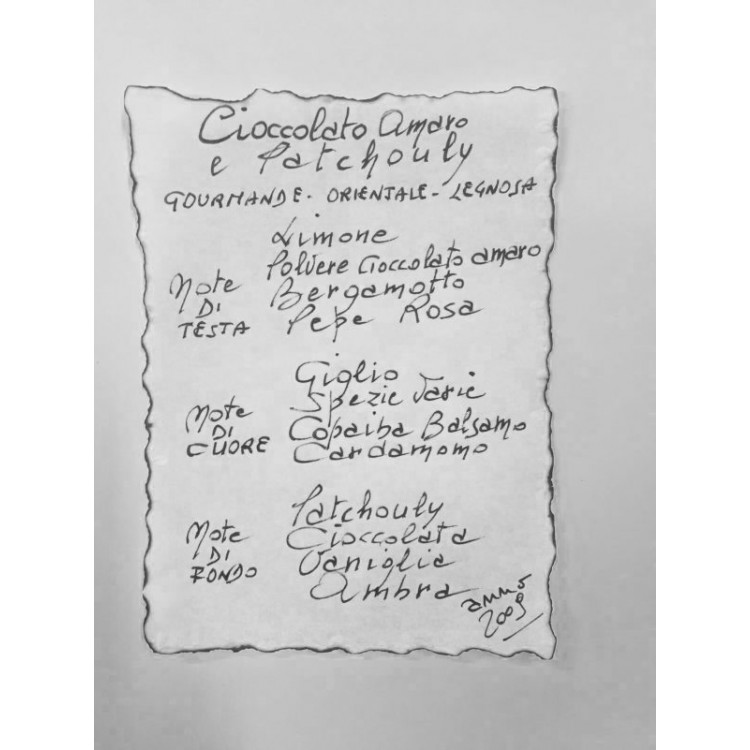 Cioccolato Amaro
e Patchouly
GOURMANDE - ORIENTALE - LEGNOSA
Note
DI
TESTA
Limone
Polvere Cioccolato amaro
Bergamotto
Pepe Rosa
Note
DI
CUORE
Giglio
Spezie Varie
Copaiba Balsamo
Cardamomo
Note
DI
FONDO
Patchouly
Cioccolata
Vaniglia
Ambra
anno
2009